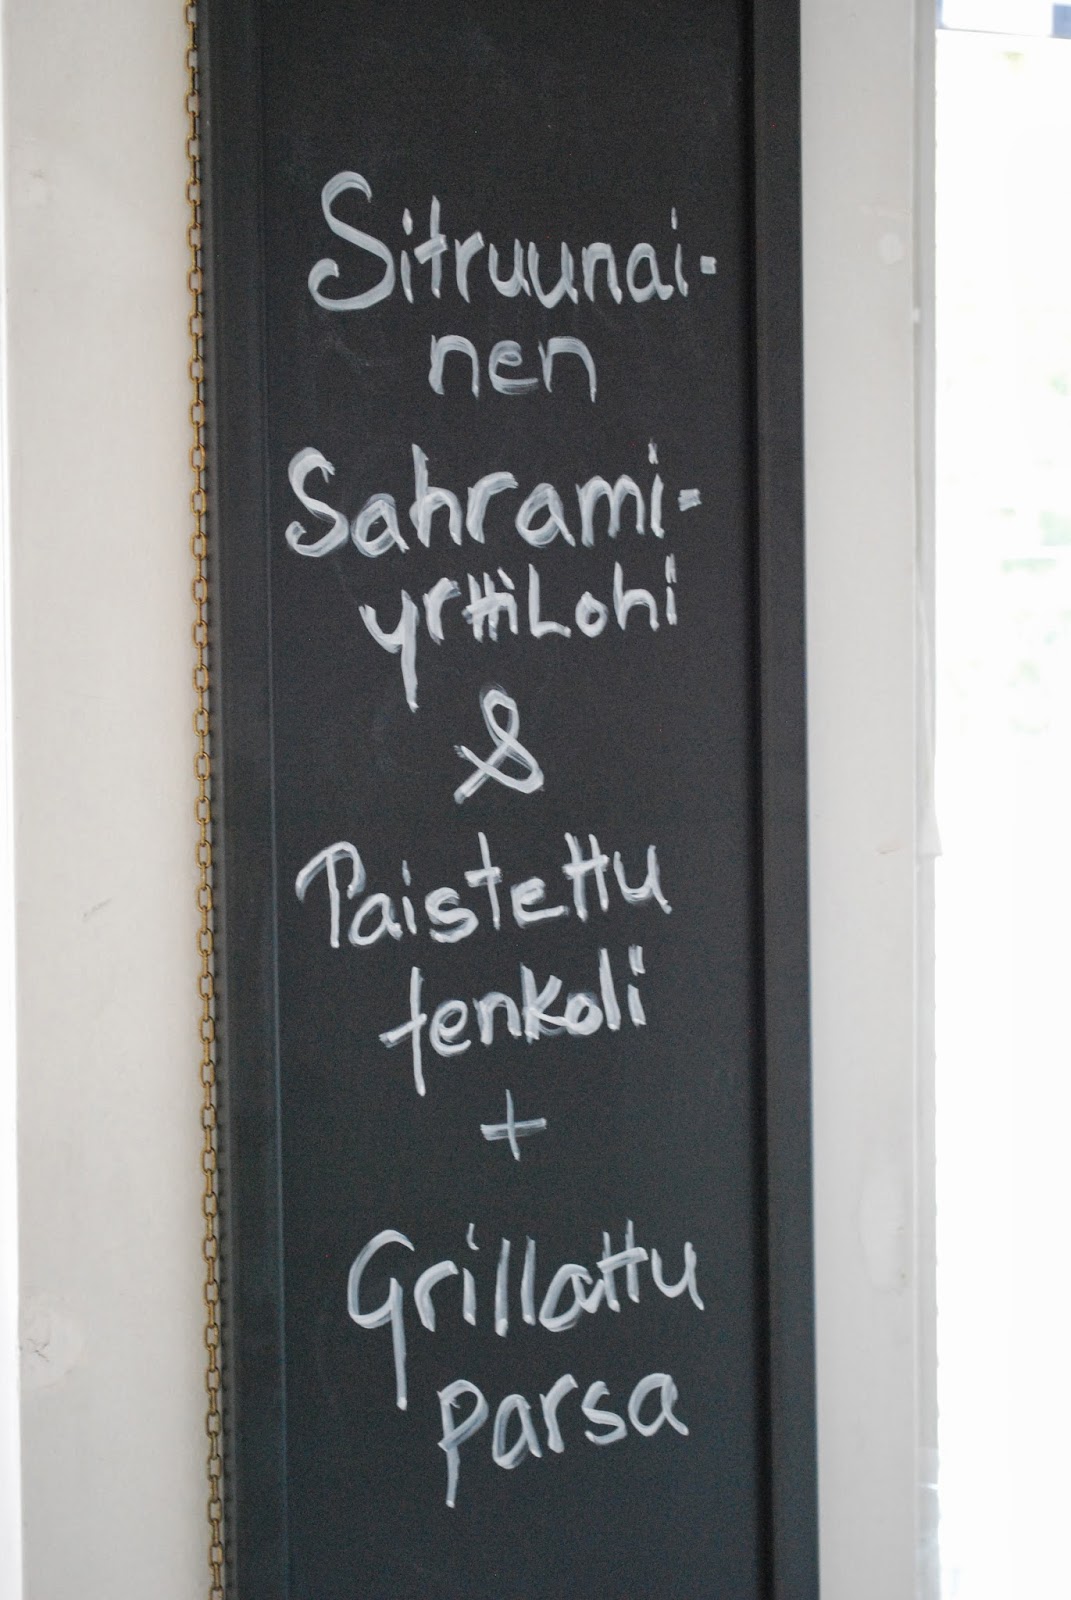 Sitruunai-
nen
Sahrami-
yrttiLohi
&
Paistettu
fenkoli
+
Grillattu
parsa